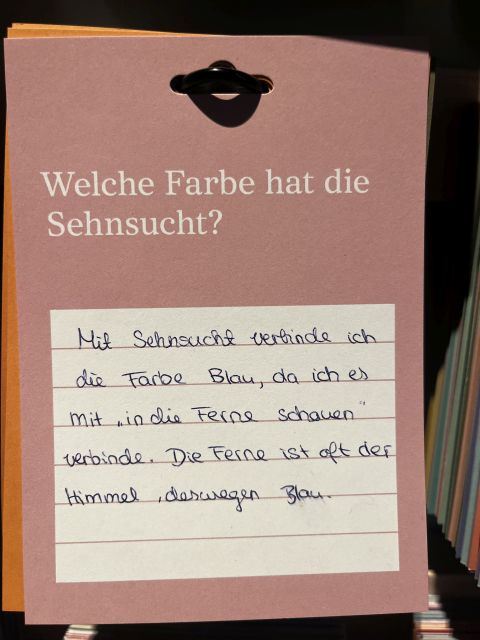 Welche Farbe hat die
Sehnsucht?
Mit Sehnsucht verbinde ich
die Farbe Blau, da ich es
mit „in die Ferne schauen“
verbinde. Die Ferne ist oft der
Himmel, deswegen Blau.